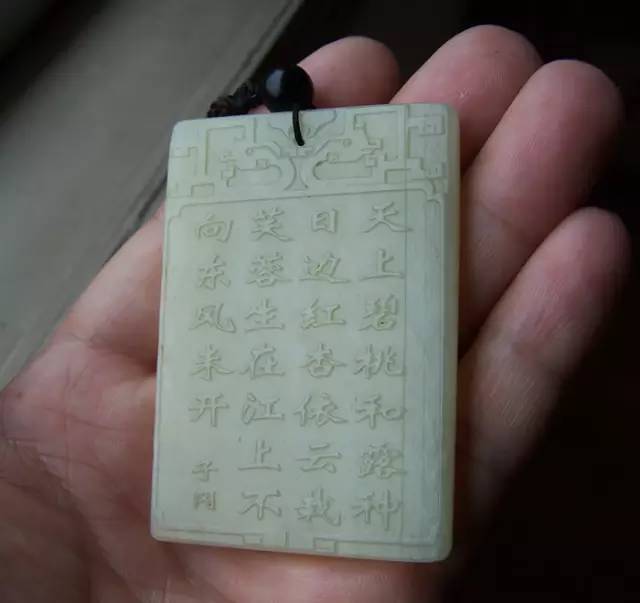 天上碧桃和露种
日边紅杏依云栽
芙蓉生在江上不
向东风未开
子冈